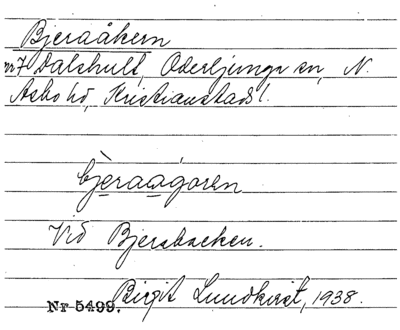 Bjeraåkern
nr 7 Dalshult, Oderljunga sn, N.
Asbo hd, Kristianstads l.
bjèraagoren
Vid Bjersbacken.
Birgit Lundkvist, 1938.
Nr 5499.